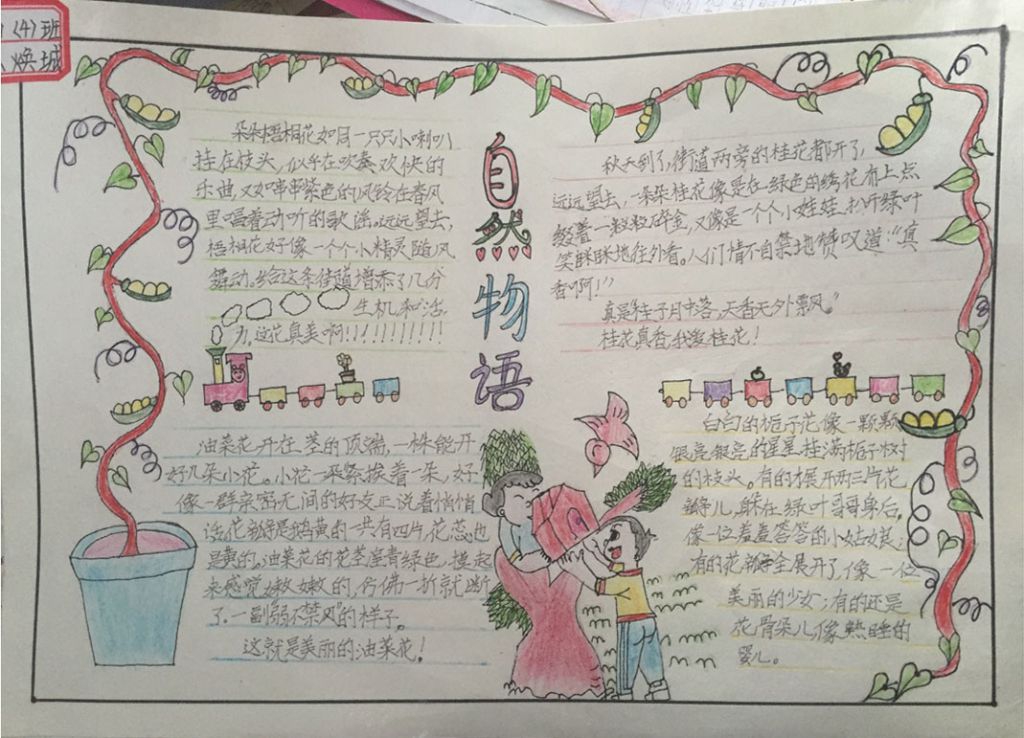 (4)班
焕城
自然物语
朵朵梧桐花如同一只只小喇叭
挂在枝头,似乎在吹奏欢快的
乐曲,又如串串紫色的风铃在春风
里唱着动听的歌谣。远远望去,
梧桐花好像一个个小精灵随风
舞动。给这条街道增添了几分
生机和活
力,这花真美啊!!!!!!!!!!
秋天到了,街道两旁的桂花都开了,
远远望去,一朵朵桂花像是在绿色的绣花布上点
缀着一粒粒碎金,又像是一个个小娃娃,扒开绿叶
笑眯眯地往外看。人们情不自禁地赞叹道:“真
香啊!”
真是“桂子月中落,天香云外飘”。
桂花真香,我爱桂花!
油菜花开在茎的顶端,一株能开
好几朵小花。小花一朵紧挨着一朵,好
像一群亲密无间的好友正说着悄悄
话,花瓣是鹅黄的一共有四片,花蕊也
是黄的。油菜花的花茎呈青绿色,摸起
来感觉嫩嫩的,仿佛一折就断
了.一副“弱不禁风”的样子。
这就是美丽的油菜花!
白白的栀子花,像一颗颗
银亮银亮的星星挂满栀子树
的枝头。有的才展开两三片花
瓣儿,躲在绿叶哥哥身后,
像一位羞羞答答的小姑娘;
有的花瓣全展开了,像一位
美丽的少女;有的还是
花骨朵儿,像熟睡的
婴儿。